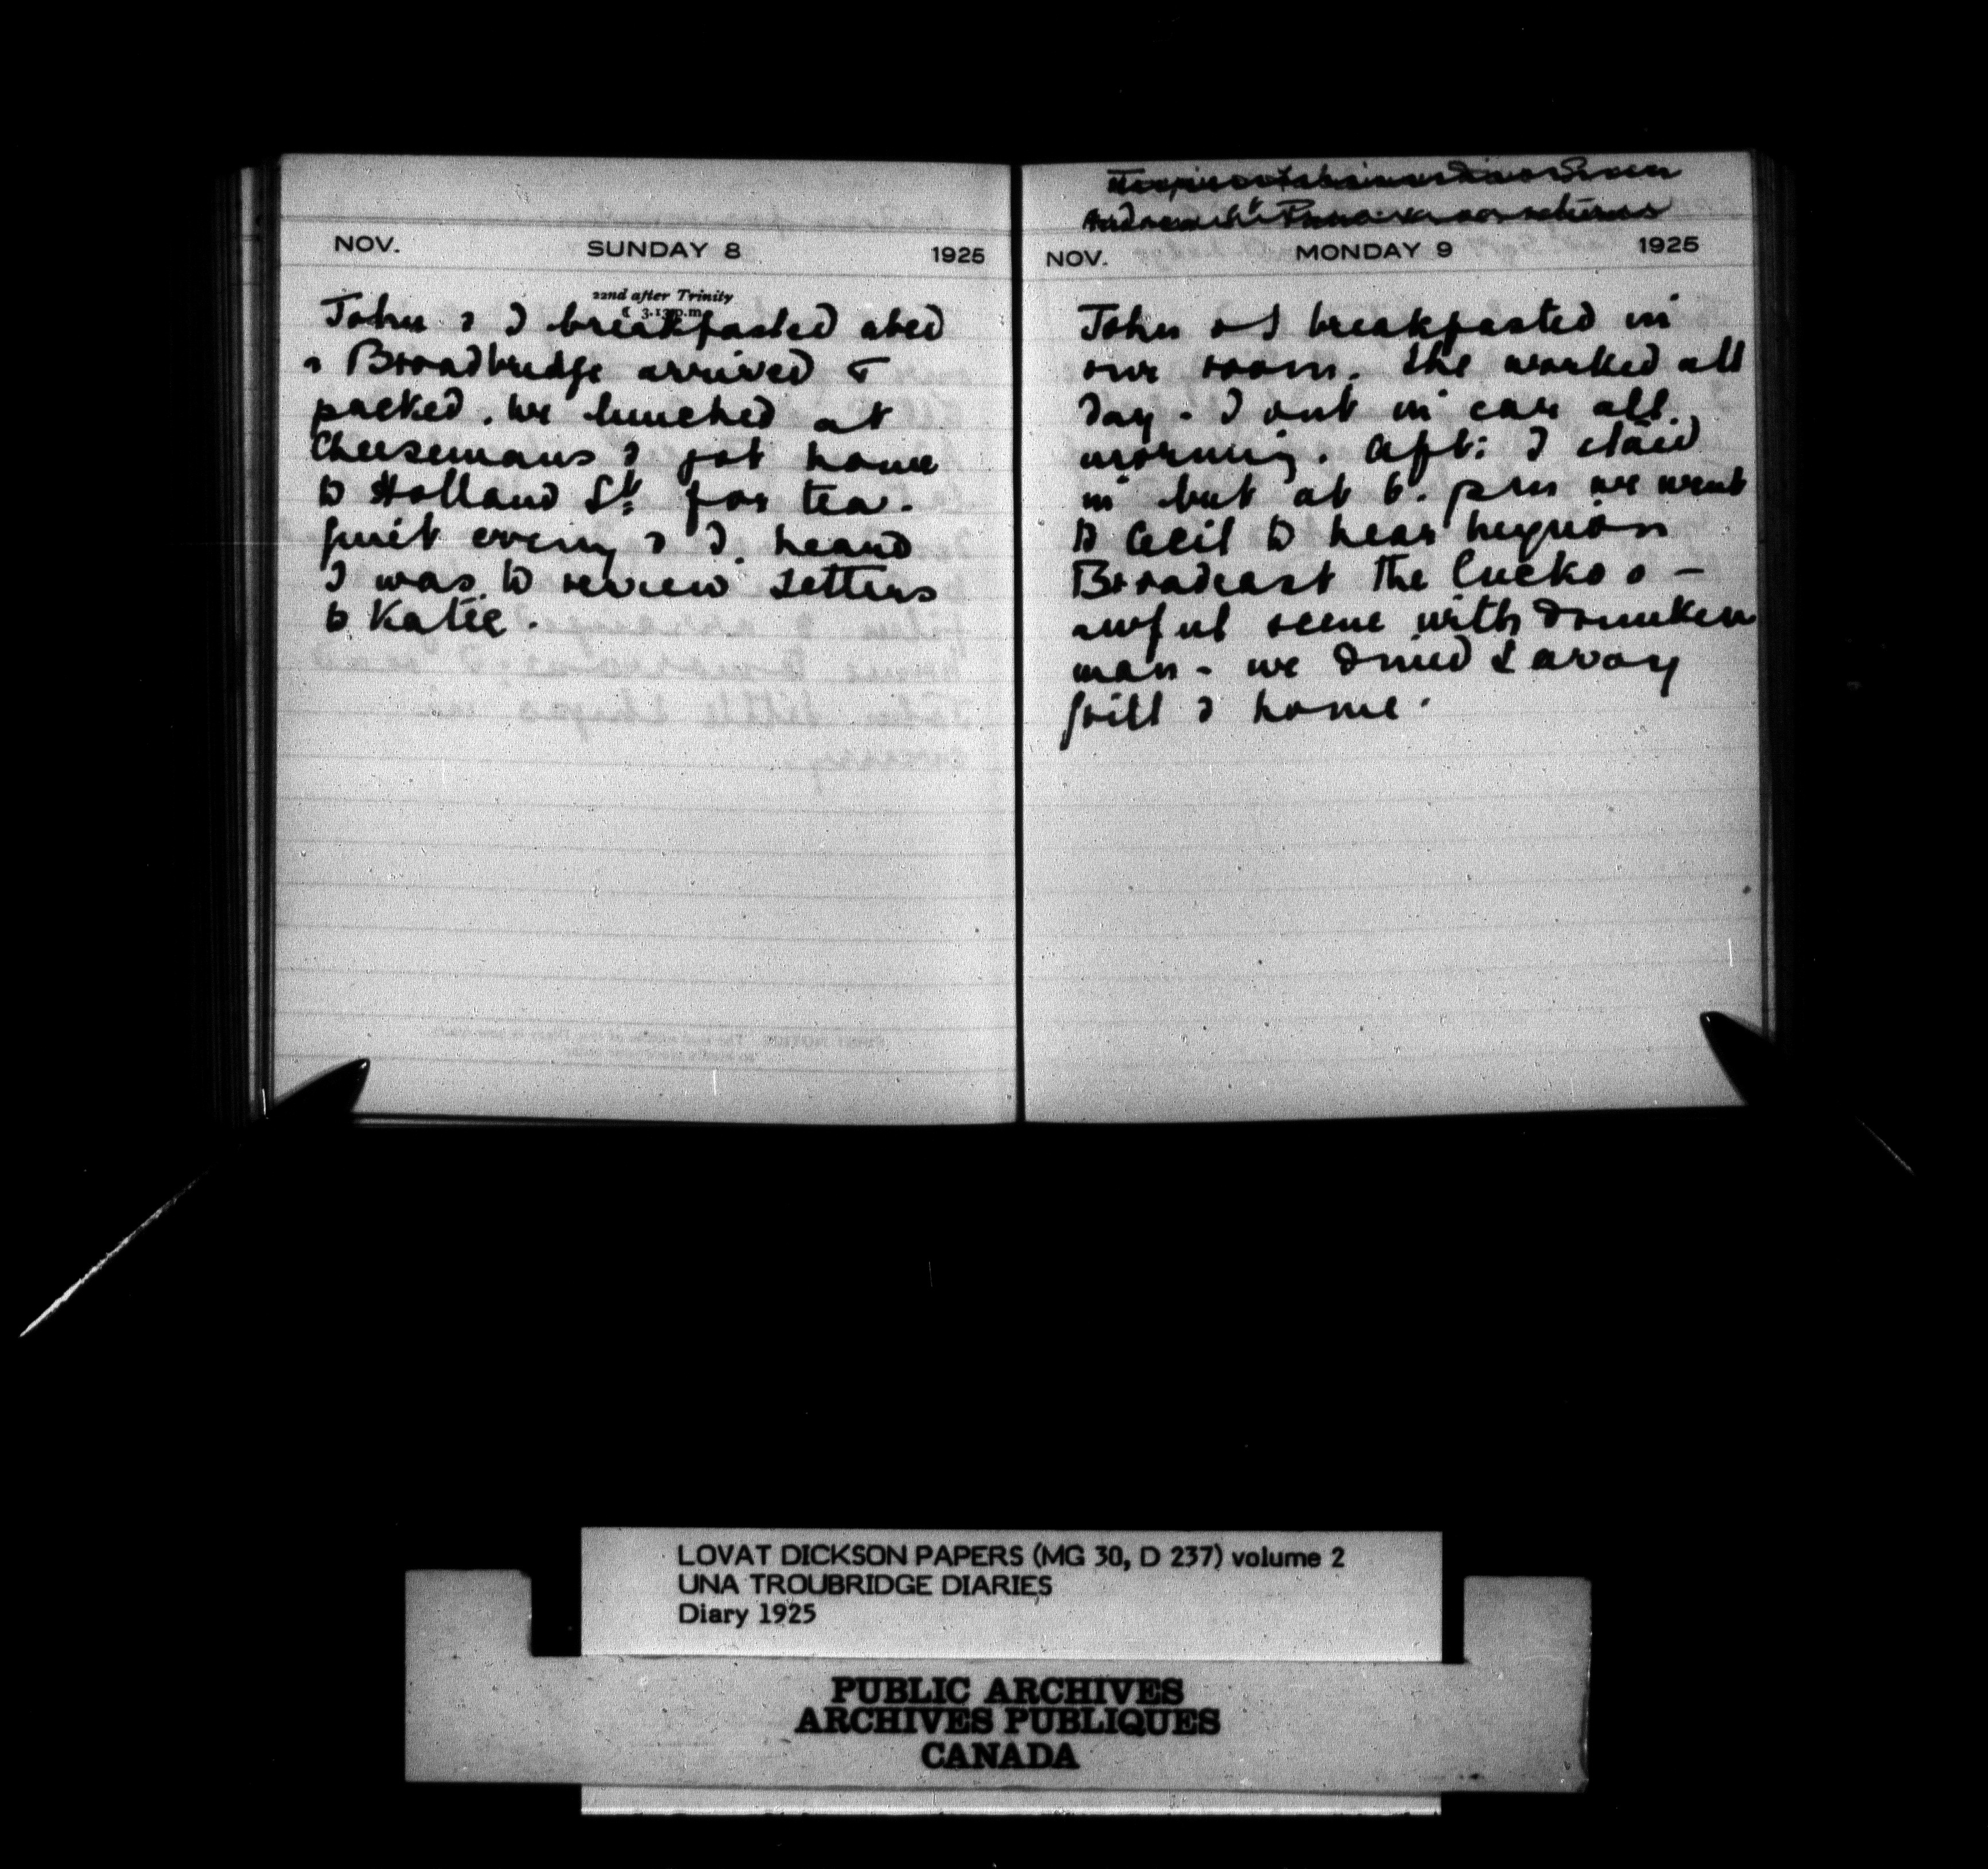 NOV. SUNDAY 8 1925
22nd after Trinity
☾ 3.13 p.m.
John & I breakfasted abed
& Broadbridge arrived &
packed. We lunched at
Cheesemans & got home
to Holland St: for tea.
Quiet evening & I heard
I was to review Letters
to Katie.
returns
NOV. MONDAY 9 1925
John & I breakfasted in
our room. She worked all
day. I out in car all
morning. Aft: I staid
in but at 6. pm we went
to Cecil to hear
Broadcast The Cuckoo –
awful scene with drunken
man – we dined Savoy
Grill & home.
LOVAT DICKSON PAPERS (MG 30, D 237) volume 2
UNA TROUBRIDGE DIARIES
Diary 1925
PUBLIC ARCHIVES
ARCHIVES PUBLIQUES
CANADA